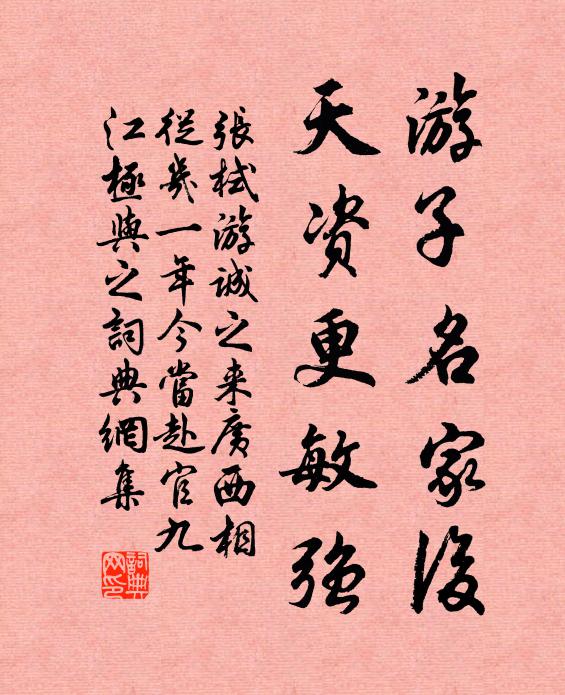 游子名家後
天資更敏强
張栻游誠之来廣西相
從幾一年今當赴官九
江極與之詞典網集
詞典網印